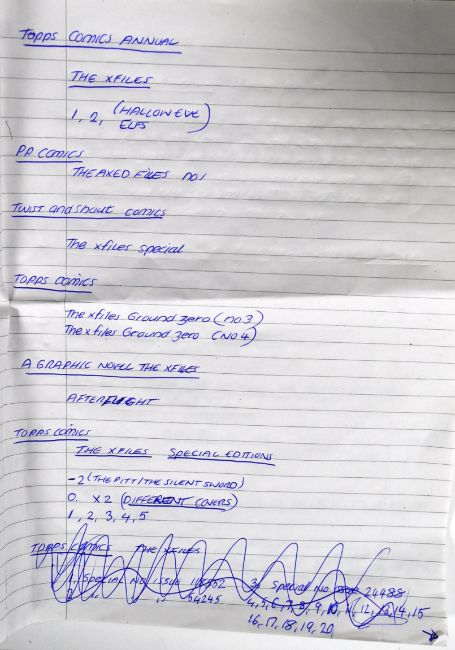 TOPPS COMICS ANNUAL
THE XFILES
1, 2, (HALLOW EVE
ELFS)
PP COMICS
THE AXED FILES no1
TWIST and shout comics
The xfiles special
TOPPS COMICS
The xfiles Ground zero (no 3)
The xfiles Ground zero (NO.4)
A GRAPHIC NOVEL THE XFILES
AFTERFLIGHT
TOPPS COMICS
THE XFILES SPECIAL EDITIONS
-2 (THE PITT/THE SILENT SWORD)
0. X2 (DIFFERENT COVERS)
1, 2, 3, 4, 5
TOPPS COMICS THE XFILES
Special NO ISSUE 3, Special no issue 24488
2 " " " 54245 4, 5, 6, 7, 8, 9, 10, 11, 12, 13, 14, 15
16, 17, 18, 19, 20